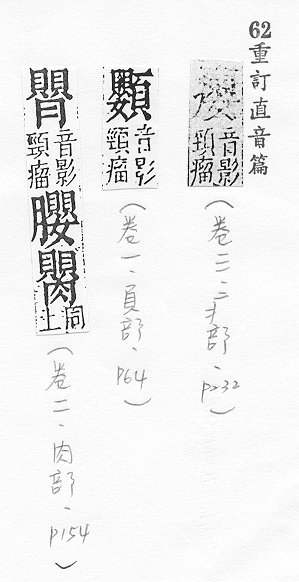 62重訂直音篇
音影
頸瘤
(卷三、疒部、p232)
音影
頸瘤
(卷一、頁部、p64)
音影
頸瘤
同
上
(卷二、肉部、p154)